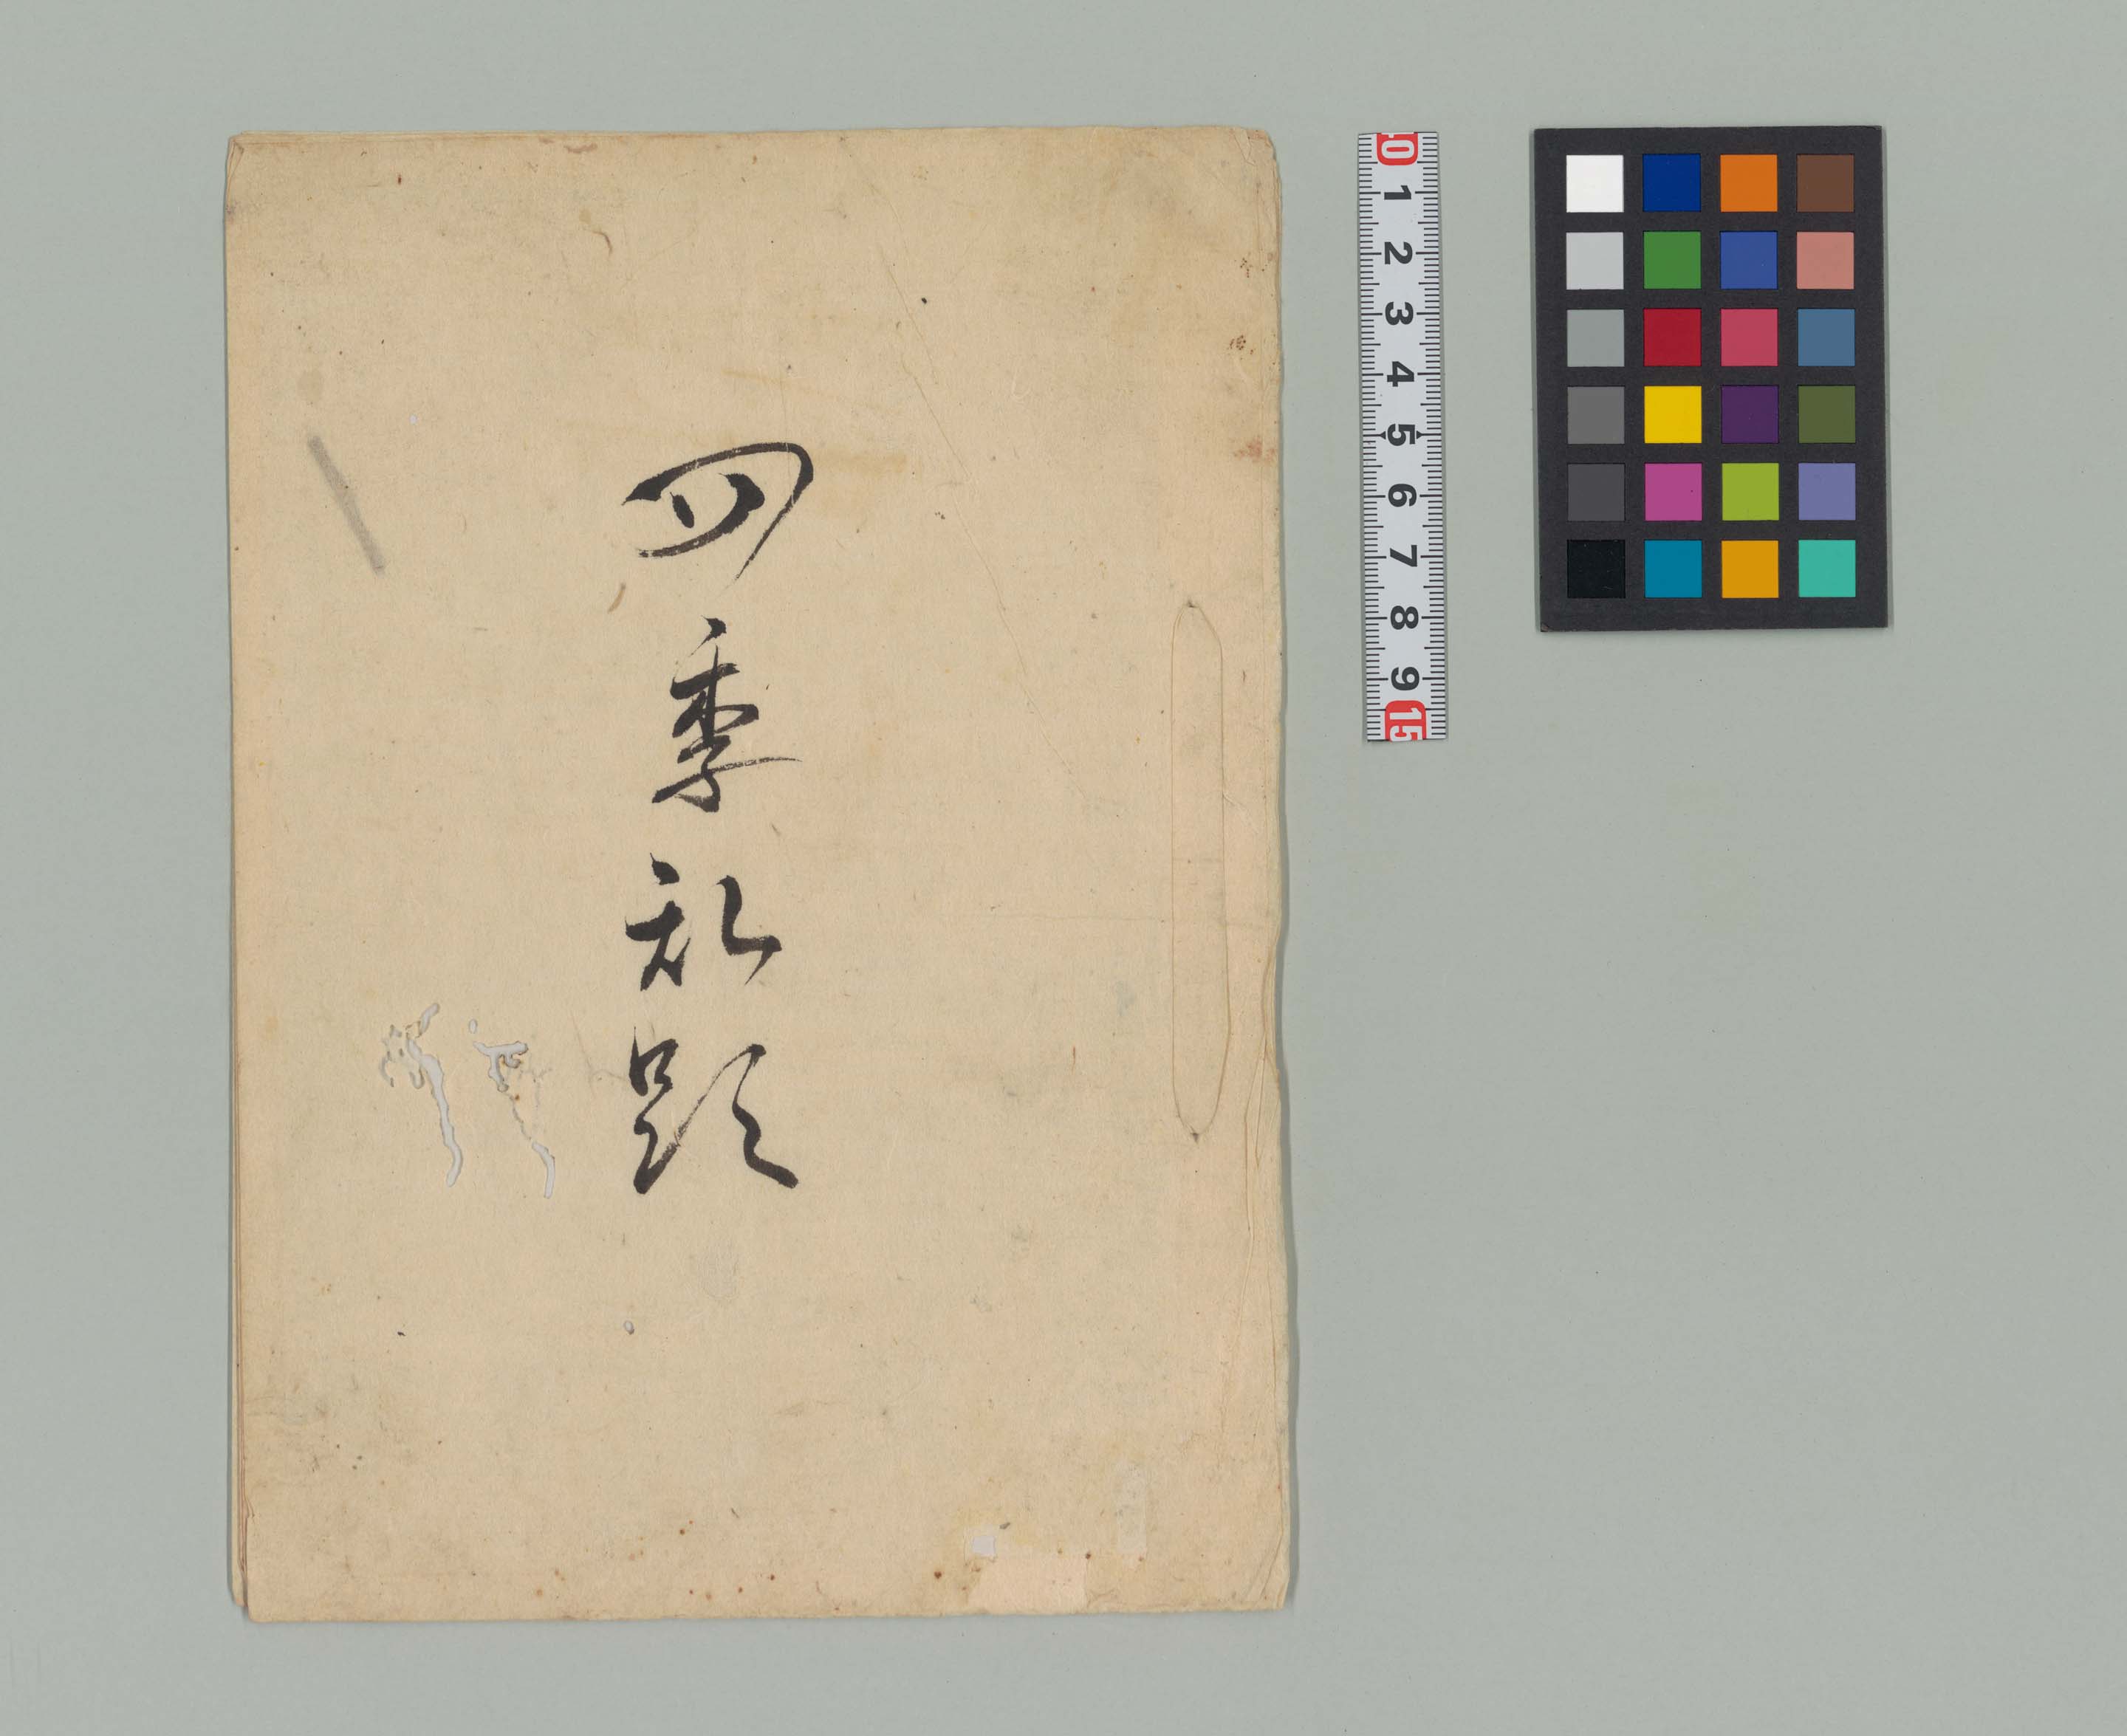 四季乱題
0 1 2 3 4 5 6 7 8 9 15